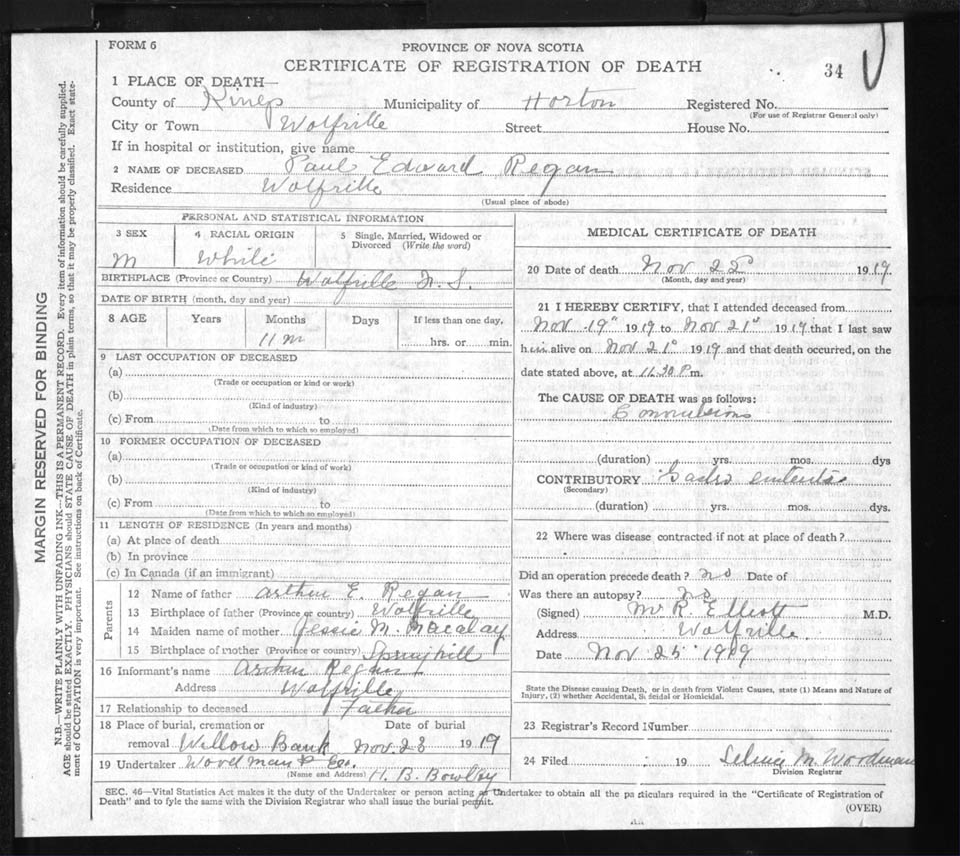 FORM 6
PROVINCE OF NOVA SCOTIA
CERTIFICATE OF REGISTRATION OF DEATH
34
1 PLACE OF DEATH—
County of Kings Municipality of Horton Registered No.
(For use of Registrar General only)
City or Town Wolfville Street House No.
If in hospital or institution, give name
2 NAME OF DECEASED Paul Edward Regan
Residence Wolfville
(Usual place of abode)
PERSONAL AND STATISTICAL INFORMATION
3 SEX 4 RACIAL ORIGIN 5 Single, Married, Widowed or Divorced (Write the word)
M White
BIRTHPLACE (Province or Country) Wolfville N.S.
DATE OF BIRTH (month, day and year)
8 AGE Years Months Days If less than one day,
11 m hrs. or min.
9 LAST OCCUPATION OF DECEASED
(a)
(Trade or occupation or kind or work)
(b)
(Kind of industry)
(c) From to
(Date from which to which so employed)
10 FORMER OCCUPATION OF DECEASED
(a)
(Trade or occupation or kind of work)
(b)
(Kind of industry)
(c) From to
(Date from which to which so employed)
11 LENGTH OF RESIDENCE (In years and months)
(a) At place of death
(b) In province
(c) In Canada (if an immigrant)
Parents
12 Name of father Arthur E. Regan
13 Birthplace of father (Province or country) Wolfville
14 Maiden name of mother Jessie M.
15 Birthplace of mother (Province or country) Springhill
16 Informant's name Arthur Regan
Address Wolfville
17 Relationship to deceased Father
18 Place of burial, cremation or Date of burial
removal Willow Bank Nov 23 1919
19 Undertaker Woodman & Co.
(Name and Address) H. B. Bowlby
MEDICAL CERTIFICATE OF DEATH
20 Date of death Nov 22 1919
(Month, day and year)
21 I HEREBY CERTIFY, that I attended deceased from
Nov 19" 1919 to Nov 21" 1919 that I last saw
him alive on Nov 21" 1919 and that death occurred, on the
date stated above, at 11.30 P m.
The CAUSE OF DEATH was as follows:
Convulsions
(duration) yrs. mos. dys
CONTRIBUTORY Gastro enteritis
(Secondary)
(duration) yrs. mos. dys.
22 Where was disease contracted if not at place of death?
Did an operation precede death? no Date of
Was there an autopsy? no
(Signed) M. R. Elliott M.D.
Address Wolfville
Date Nov 25 1919
State the Disease causing Death, or in death from Violent Causes, state (1) Means and Nature of
Injury, (2) whether Accidental, Suicidal or Homicidal.
23 Registrar's Record Number
24 Filed 19 M. Woodman
Division Registrar
SEC. 46—Vital Statistics Act makes it the duty of the Undertaker or person acting as Undertaker to obtain all the particulars required in the "Certificate of Registration of
Death" and to fyle the same with the Division Registrar who shall issue the burial permit.
(OVER)
MARGIN RESERVED FOR BINDING
N.B.—WRITE PLAINLY WITH UNFADING INK—THIS IS A PERMANENT RECORD. Every item of information should be carefully supplied.
AGE should be stated EXACTLY. PHYSICIANS should STATE CAUSE OF DEATH in plain terms, so that it may be properly classified. Exact state-
ment of OCCUPATION is very important. See instructions on back of Certificate.